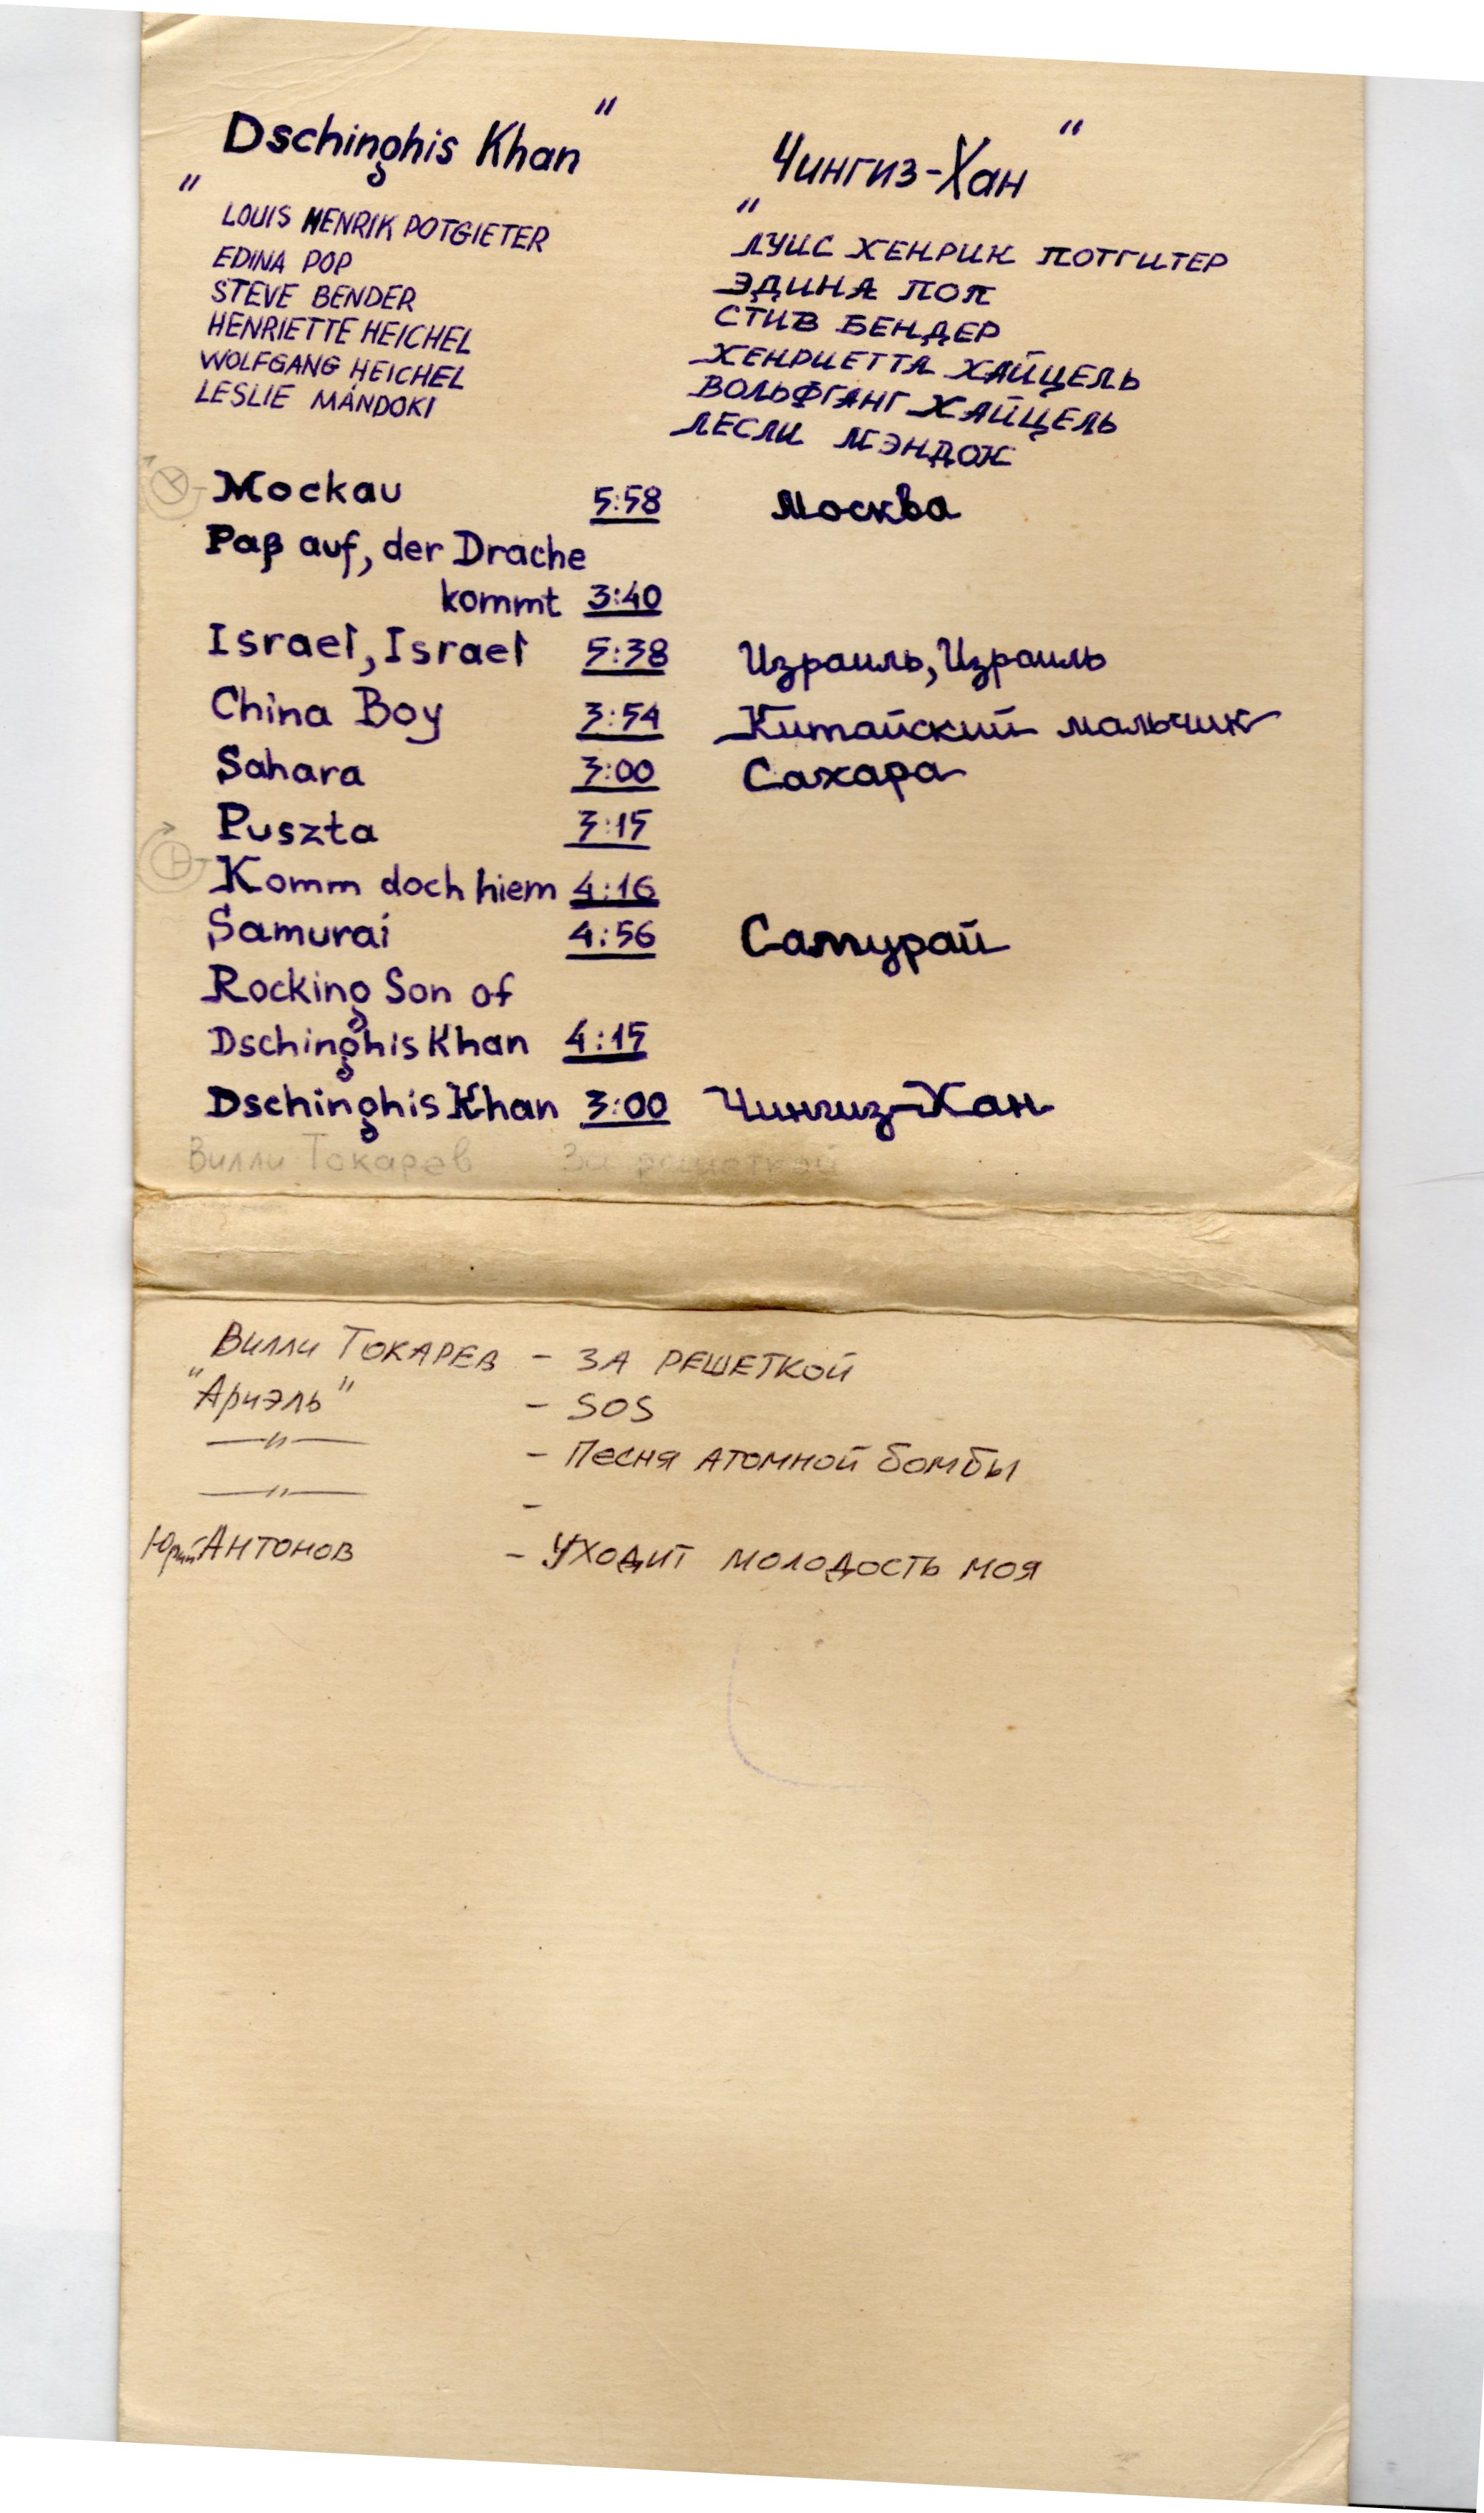 "Dschinghis Khan" "Чингиз-Хан"
LOUIS HENRIK POTGIETER ЛУИС ХЕНРИК ПОТГИТЕР
EDINA POP ЭДИНА ПОП
STEVE BENDER СТИВ БЕНДЕР
HENRIETTE HEICHEL ХЕНРИЕТТА ХАЙЦЕЛЬ
WOLFGANG HEICHEL ВОЛЬФГАНГ ХАЙЦЕЛЬ
LESLIE MÁNDOKI ЛЕСЛИ МЭНДОК
Mockau 5:58 Москва
Paβ auf, der Drache
kommt 3:40
Israel, Israel 5:38 Израиль, Израиль
China Boy 3:54 Китайский мальчик
Sahara 3:00 Сахара
Puszta 3:15
Komm doch hiem 4:16
Samurai 4:56 Самурай
Rocking Son of
Dschinghis Khan 4:15
Dschinghis Khan 3:00 Чингиз-Хан
Вилли Токарев За решеткой
Вилли ТОКАРЕВ - ЗА РЕШЕТКОЙ
"Ариэль" - SOS
—"— - Песня АТОМНОЙ БОМБЫ
—"— -
Юрий АНТОНОВ - УХОДИТ МОЛОДОСТЬ МОЯ